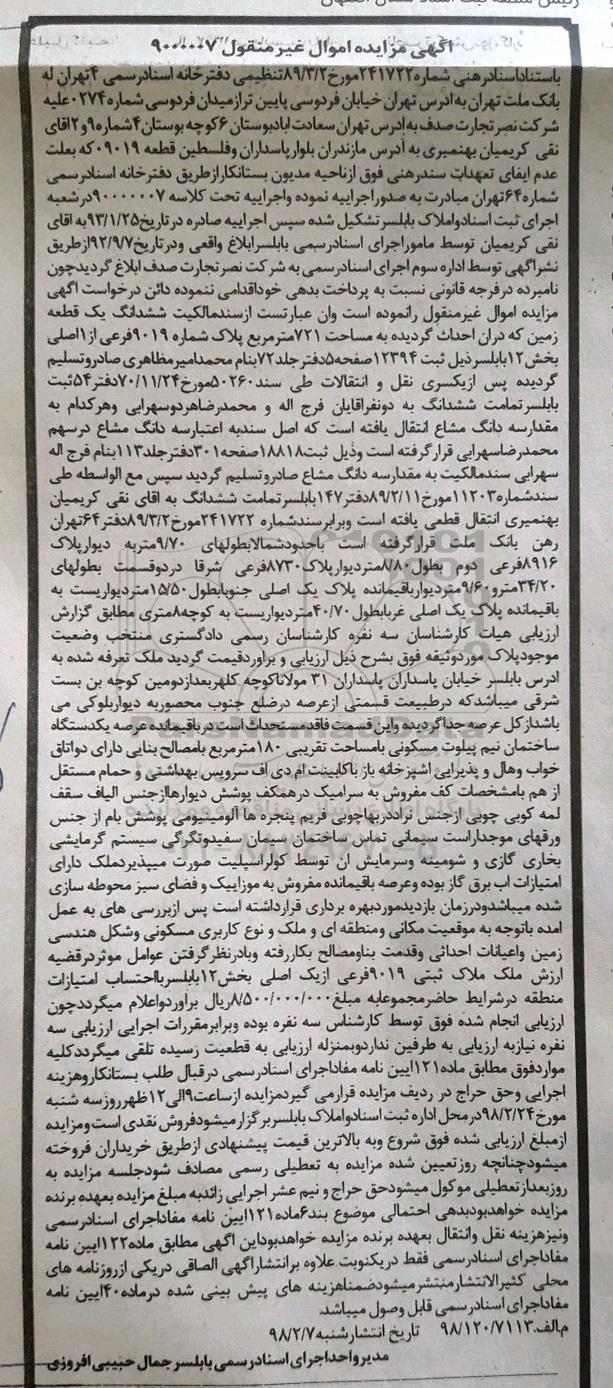 آگهی مزایده اموال غیرمنقول ۹۰۰۰۰۰۷
باستناداسنادرهنی شماره۲۴۱۷۲۲مورخ۸۹/۳/۲تنظیمی دفترخانه اسنادرسمی ۶۴تهران له
بانک ملت تهران به ادرس تهران خیابان فردوسی پایین ترازمیدان فردوسی شماره۰۲۷۴علیه
شرکت نصرتجارت صدف به ادرس تهران سعادت ابادبوستان ۶کوچه بوستان۴شماره۹و۲اقای
نقی کریمیان بهنمیری به آدرس مازندران بلوارپاسداران وفلسطین قطعه ۰۹۰۱۹که بعلت
عدم ایفای تعهدات سندرهنی فوق ازناحیه مدیون بستانکارازطریق دفترخانه اسنادرسمی
شماره۶۴تهران مبادرت به صدوراجراییه نموده واجراییه تحت کلاسه ۹۰۰۰۰۰۰۷درشعبه
اجرای ثبت اسنادواملاک بابلسرتشکیل شده سپس اجراییه صادره درتاریخ۹۳/۱/۲۵به اقای
نقی کریمیان توسط ماموراجرای اسنادرسمی بابلسرابلاغ واقعی ودرتاریخ۹۲/۹/۷ازطریق
نشراگهی توسط اداره سوم اجرای اسنادرسمی به شرکت نصرتجارت صدف ابلاغ گردیدچون
نامبرده درفرجه قانونی نسبت به پرداخت بدهی خوداقدامی ننموده دائن درخواست اگهی
مزایده اموال غیرمنقول رانموده است وان عبارتست ازسندمالکیت ششدانگ یک قطعه
زمین که دران احداث گردیده به مساحت ۷۲۱مترمربع پلاک شماره ۹۰۱۹فرعی از۱اصلی
بخش۱۲بابلسرذیل ثبت ۱۲۳۹۴صفحه۵دفترجلد۷۲بنام محمدامیرمظاهری صادروتسلیم
گردیده پس ازیکسری نقل و انتقالات طی سند۵۰۲۶۰مورخ۷۰/۱۱/۲۴دفتر۵۴ثبت
بابلسرتمامت ششدانگ به دونفراقایان فرج اله و محمدرضاهردوسهرابی وهرکدام به
مقدارسه دانگ مشاع انتقال یافته است که اصل سندبه اعتبارسه دانگ مشاع درسهم
محمدرضاسهرابی قرارگرفته است وذیل ثبت۱۸۸۱۸صفحه۳۰۱دفترجلد۱۱۳بنام فرج اله
سهرابی سندمالکیت به مقدارسه دانگ مشاع صادروتسلیم گردید سپس مع الواسطه طی
سندشماره۱۱۲۰۳مورخ۸۹/۲/۱۱دفتر۱۴۷بابلسرتمامت ششدانگ به اقای نقی کریمیان
بهنمیری انتقال قطعی یافته است وبرابرسندشماره ۲۴۱۷۲۲مورخ۸۹/۳/۲دفتر۶۴تهران
رهن بانک ملت قرارگرفته است باحدودشمالابطولهای ۹/۷۰متربه دیوارپلاک
۸۹۱۶فرعی دوم بطول۸/۸۰متردیوارپلاک۸۷۳۰فرعی شرقا دردوقسمت بطولهای
۳۴/۲۰مترو۹/۶۰متردیوارباقیمانده پلاک یک اصلی جنوبابطول۱۵/۵۰متردیواریست به
باقیمانده پلاک یک اصلی غربابطول۴۰/۷۰متردیواریست به کوچه۸متری مطابق گزارش
ارزیابی هیات کارشناسان سه نفره کارشناسان رسمی دادگستری منتخب وضعیت
موجودپلاک موردوثیقه فوق بشرح ذیل ارزیابی و براوردقیمت گردید ملک تعرفه شده به
ادرس بابلسر خیابان پاسداران پاسداران ۳۱ مولاناکوچه کلهربعدازدومین کوچه بن بست
شرقی میباشدکه درطبیعت قسمتی ازعرصه درضلع جنوب محصوربه دیواربلوکی می
باشدازکل عرصه جداگردیده واین قسمت فاقدمستحدثات است درباقیمانده عرصه یکدستگاه
ساختمان نیم پیلوت مسکونی بامساحت تقریبی ۱۸۰مترمربع بامصالح بنایی دارای دواتاق
خواب وهال و پذیرایی اشپزخانه باز باکابینت ام دی اف سرویس بهداشتی و حمام مستقل
از هم بامشخصات کف مفروش به سرامیک درهمکف پوشش دیوارهاازجنس الیاف سقف
لمه کوبی چوبی ازجنس تراددربهاچوبی فریم پنجره ها آلومینیومی پوشش بام از جنس
ورقهای موجداراست سیمانی تماس ساختمان سیمان سفیدوتگرگی سیستم گرمایشی
بخاری گازی و شومینه وسرمایش ان توسط کولراسپلیت صورت میپذیردملک دارای
امتیازات اب برق گاز بوده وعرصه باقیمانده مفروش به موزاییک و فضای سبز محوطه سازی
شده میباشدودرزمان بازدیدموردبهره برداری قرارداشته است پس ازبررسی های به عمل
امده باتوجه به موقعیت مکانی ومنطقه ای و ملک و نوع کاربری مسکونی وشکل هندسی
زمین واعیانات احداثی وقدمت بناومصالح بکاررفته وبادرنظرگرفتن عوامل موثردرقضیه
ارزش ملک ملاک ثبتی ۹۰۱۹فرعی ازیک اصلی بخش۱۲بابلسربااحتساب امتیازات
منطقه درشرایط حاضرمجموعابه مبلغ۸/۵۰۰/۰۰۰/۰۰۰ریال براوردواعلام میگرددچون
ارزیابی انجام شده فوق توسط کارشناس سه نفره بوده وبرابرمقررات اجرایی ارزیابی سه
نفره نیازبه ارزیابی به طرفین نداردوبمنزله ارزیابی به قطعیت رسیده تلقی میگرددکلیه
مواردفوق مطابق ماده۱۲۱ایین نامه مفاداجرای اسنادرسمی درقبال طلب بستانکاروهزینه
اجرایی وحق حراج در ردیف مزایده قرارمی گیردمزایده ازساعت۹الی۱۲ظهرروزسه شنبه
مورخ۹۸/۲/۲۴درمحل اداره ثبت اسنادواملاک بابلسربرگزارمیشودفروش نقدی است ومزایده
ازمبلغ ارزیابی شده فوق شروع وبه بالاترین قیمت پیشنهادی ازطریق خریداران فروخته
میشودچنانچه روزتعیین شده مزایده به تعطیلی رسمی مصادف شودجلسه مزایده به
روزبعدازتعطیلی موکول میشودحق حراج و نیم عشر اجرایی زائدبه مبلغ مزایده بعهده برنده
مزایده خواهدبودبدهی احتمالی موضوع بند۶ماده۱۲۱ایین نامه مفاداجرای اسنادرسمی
ونیزهزینه نقل وانتقال بعهده برنده مزایده خواهدبوداین اگهی مطابق ماده۱۲۲ایین نامه
مفاداجرای اسنادرسمی فقط دریکنوبت علاوه برانتشاراگهی الصاقی دریکی ازروزنامه های
محلی کثیرالانتشارمنتشرمیشودضمناهزینه های پیش بینی شده درماده۴۰ایین نامه
مفاداجرای اسنادرسمی قابل وصول میباشد.
م.الف.۹۸/۱۲۰/۷۱۱۳ تاریخ انتشارشنبه۹۸/۲/۷
مدیرواحداجرای اسنادرسمی بابلسرجمال حبیبی افروزی